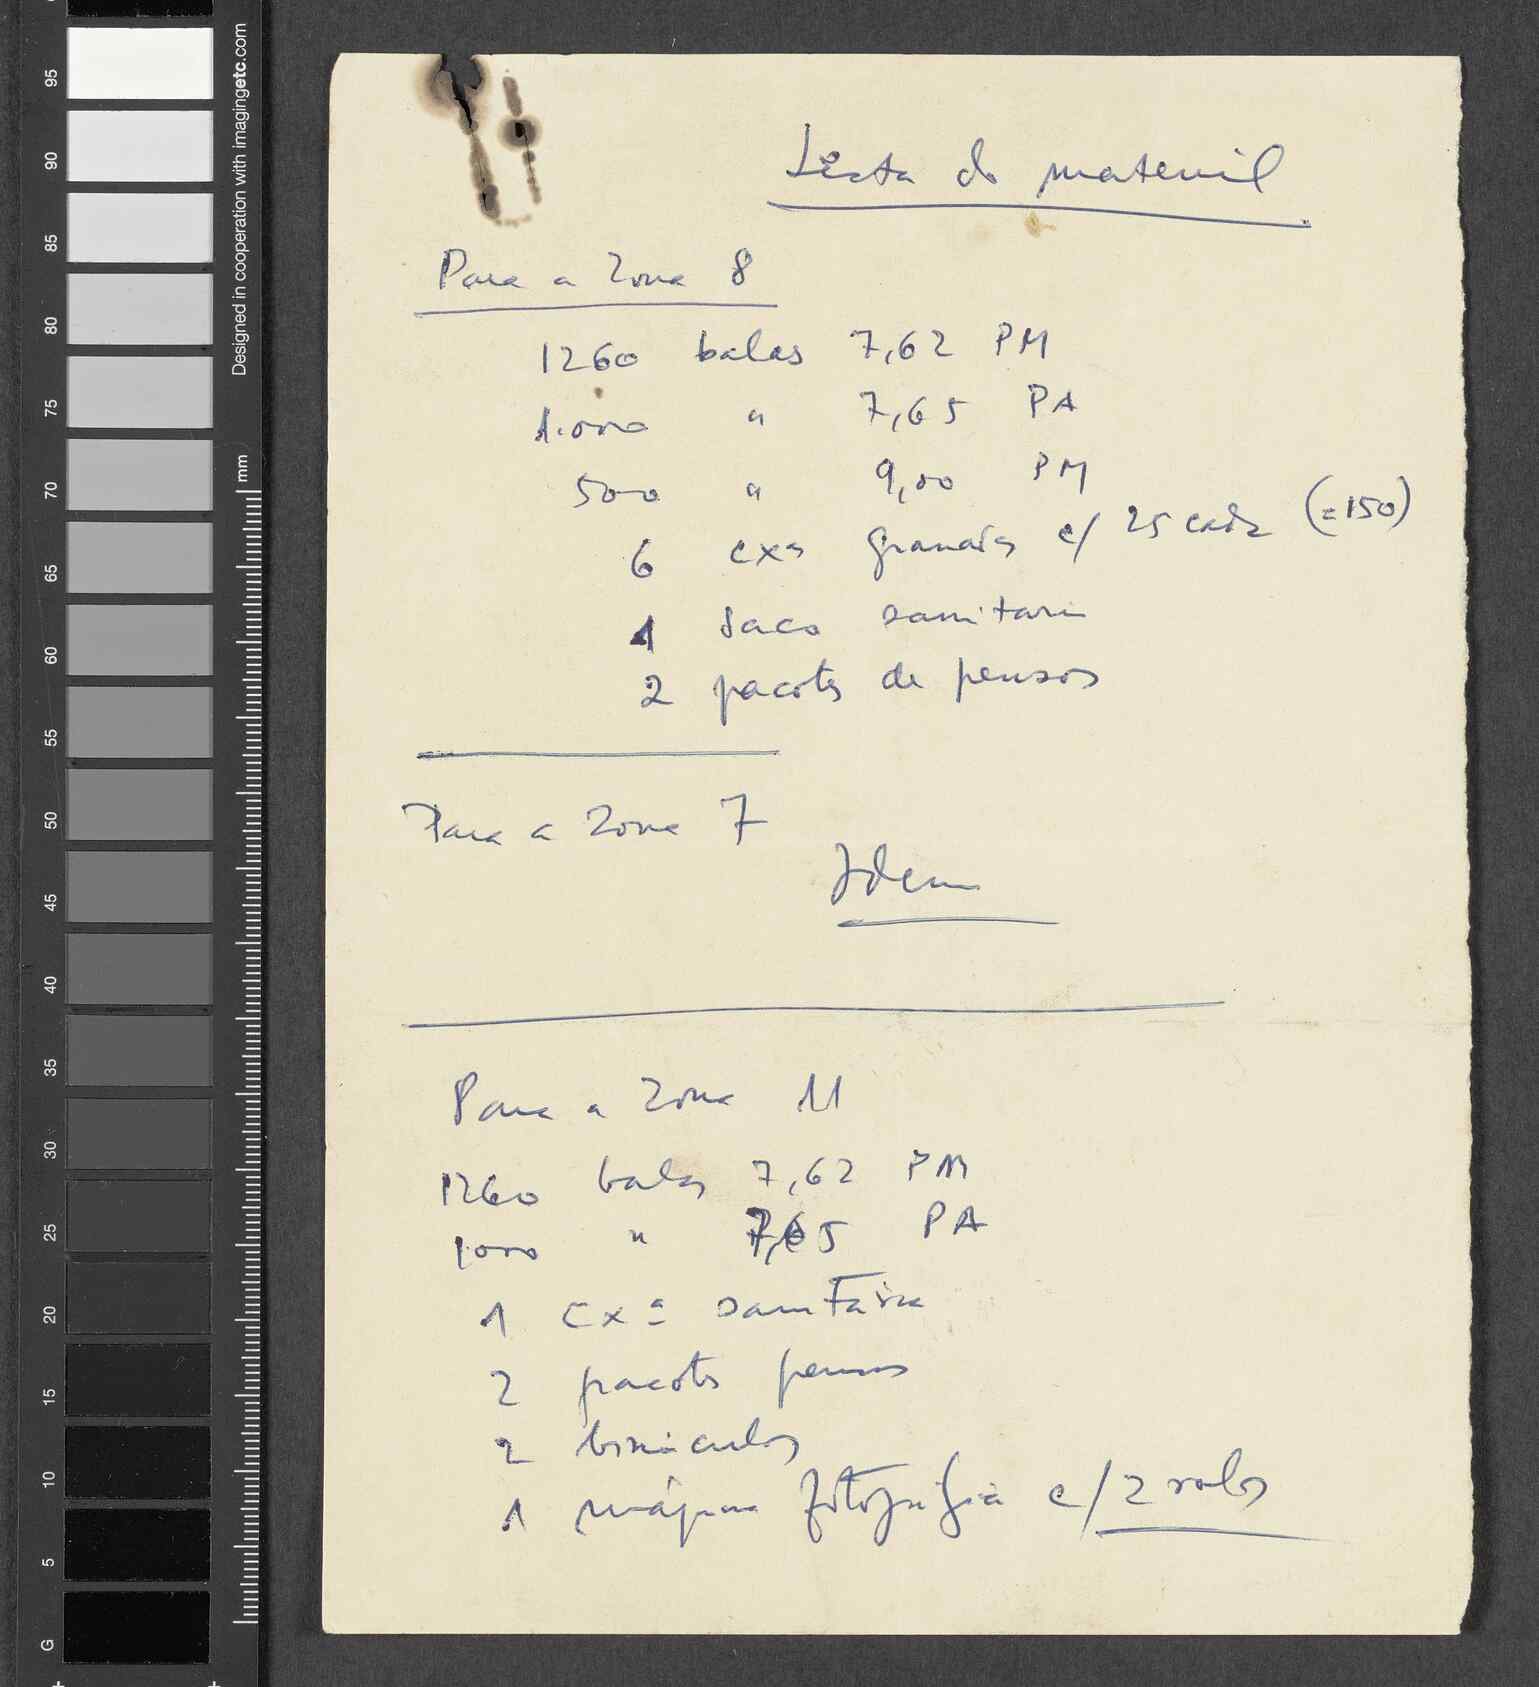 Lista do material
Para a Zona 8
1260 balas 7,62 PM
1.000 " 7,65 PA
500 " 9,00 PM
6 cxas granadas c/ 25 cada (=150)
1 saco sanitario
2 pacotes de pensos
Para a Zona 7
Idem
Para a Zona 11
1260 balas 7,62 PM
1000 " 7,65 PA
1 Cxª sanitária
2 pacotes pensos
2 binóculos
1 máquina fotografia c/ 2 rolos
Designed in cooperation with imagingetc.com
mm
95
90
85
80
75
70
65
60
55
50
45
40
35
30
25
20
15
10
5
G